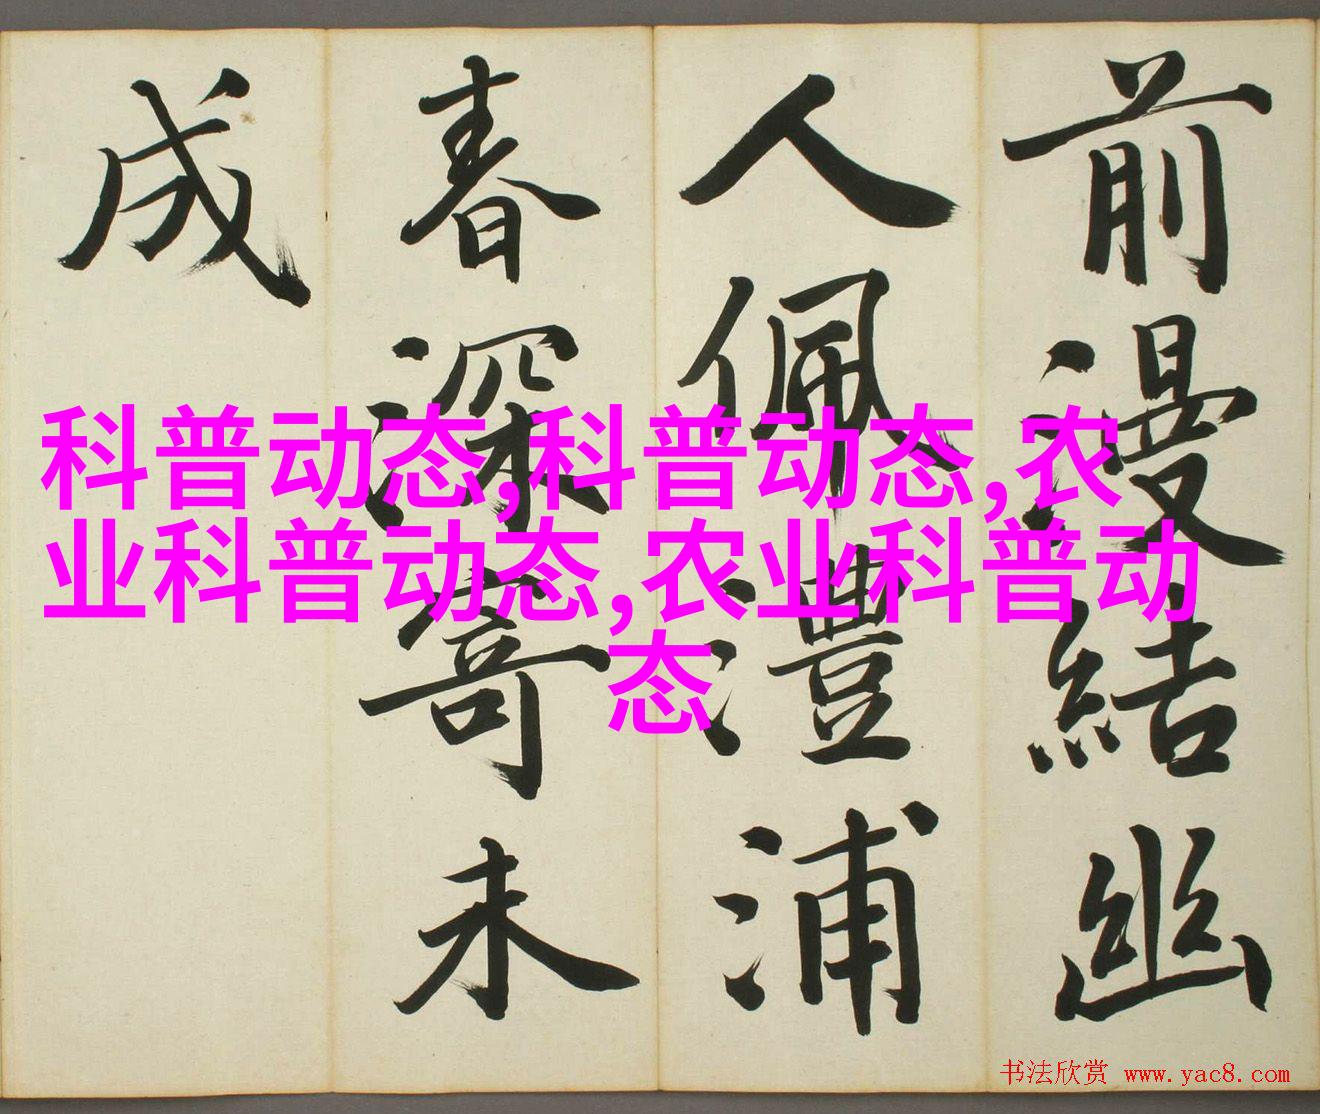 前漫結幽
人佩澧浦
春深寄未
成
科普动态,科普动态,农
业科普动态,农业科普动
态
书法欣赏 www.yac8.com